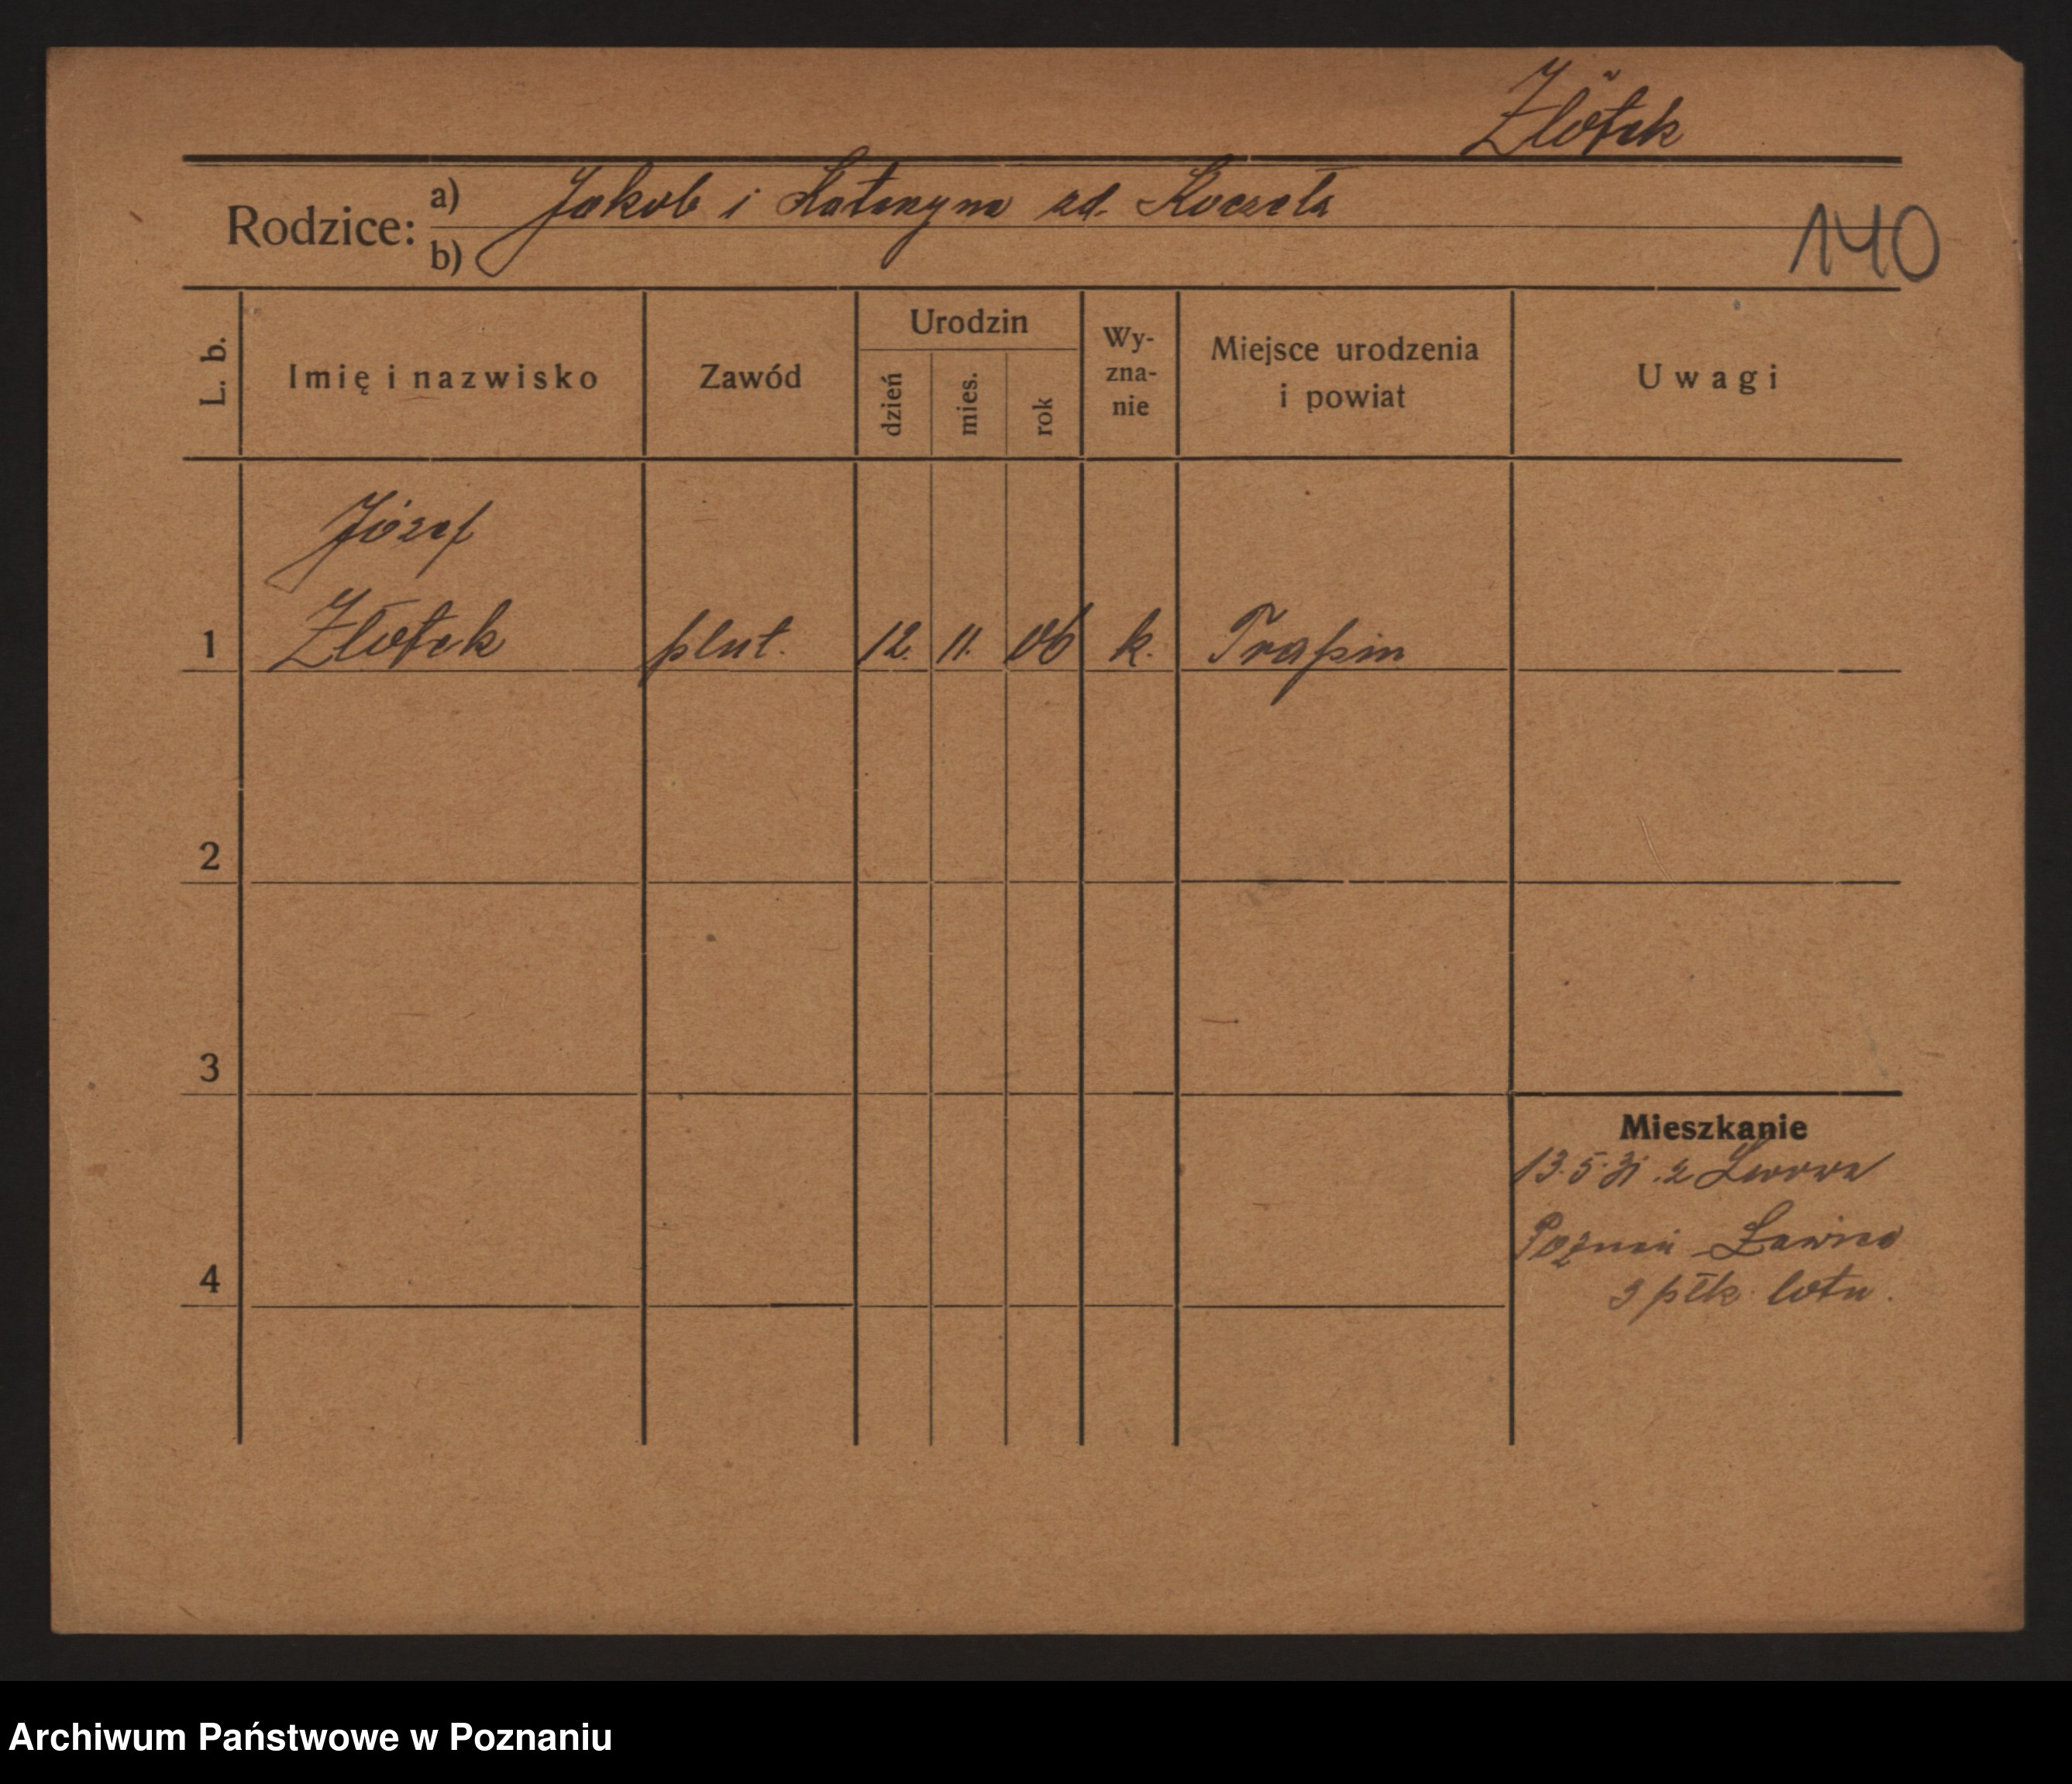 Złotek
Rodzice: a) Jakob i Katarzyna zd. Koczeła
b)
140
L. b. Imię i nazwisko Zawód Urodzin dzień mies. rok Wy-zna-nie Miejsce urodzenia i powiat Uwagi
Józef
1 Złotek plut. 12. 11. 06 k. Trafin
2
3
Mieszkanie
13.5.31 .z Lwowa
Poznań - Ławica
4
3 płk lotn.
Archiwum Państwowe w Poznaniu